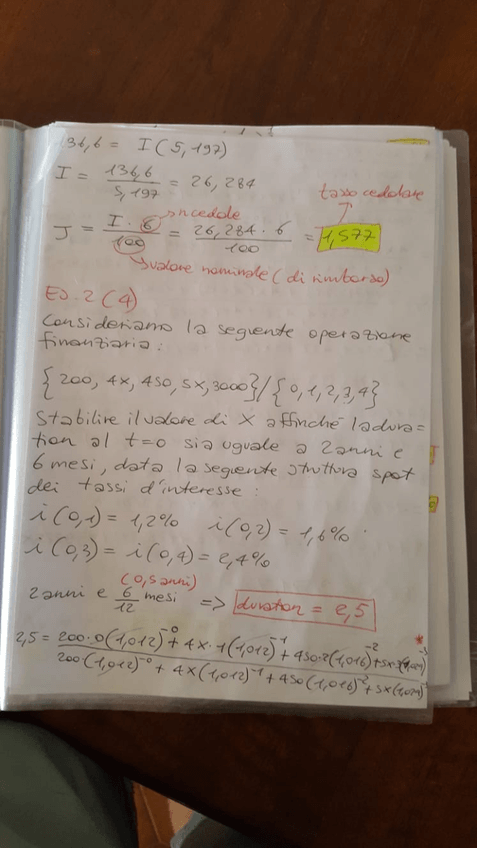 136,6 = I (5,197)
I = 136,6 / 5,197 = 26,284
tasso cedolare
J = I · 6 / 100 = 26,284 · 6 / 100 = 1,577
n cedole
valore nominale (di rimborso)
ES. 2 (4)
Consideriamo la seguente operazione
finanziaria:
{200, 4x, 450, 5x, 3000} / {0, 1, 2, 3, 4}
Stabilire il valore di X affinché la dura-
tion al t=0 sia uguale a 2 anni e
6 mesi, data la seguente struttura spot
dei tassi d'interesse:
i(0,1) = 1,2% i(0,2) = 1,6%
i(0,3) = i(0,4) = 2,4%
(0,5 anni)
2 anni e 6/12 mesi => duration = 2,5
*
2,5 = 200·0(1,012)^-0 + 4x·1(1,012)^-1 + 450·2(1,016)^-2 + 5x·3(1,024)^-3
200·(1,012)^-0 + 4x(1,012)^-1 + 450(1,016)^-2 + 5x(1,024)^-3